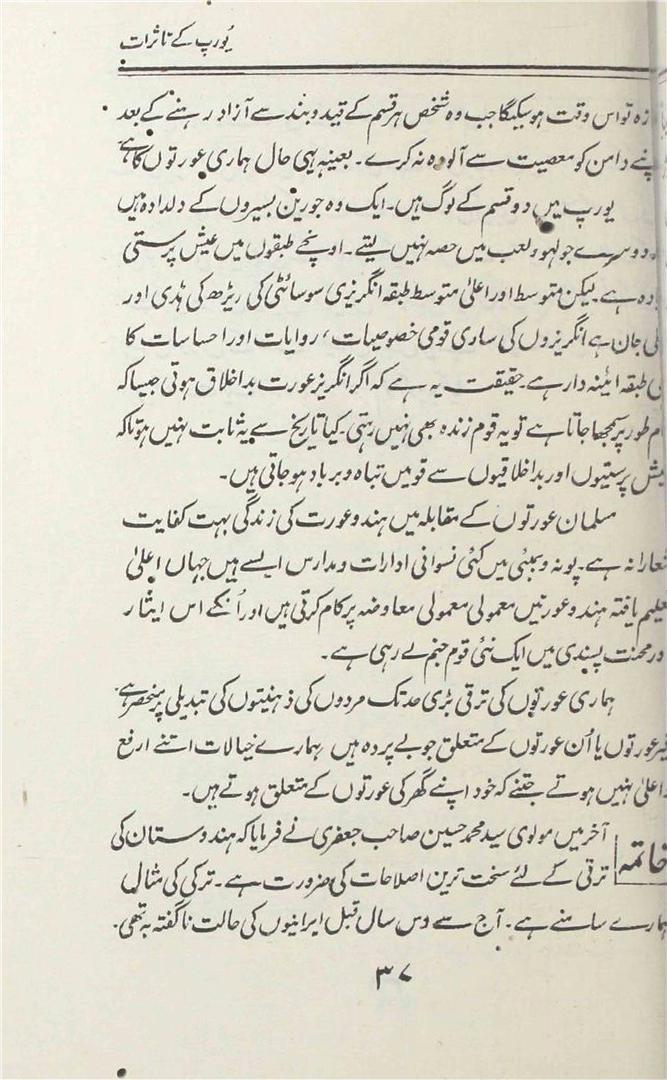 یورپ کے تاثرات
تو اس وقت ہوسکیگا جب وہ شخص ہر قسم کے قید و بند سے آزاد رہنے کے بعد
اپنے دامن کو معصیت سے آلودہ نہ کرے۔ بعینہ یہی حال ہماری عورتوں کا ہے
یورپ میں دو قسم کے لوگ ہیں۔ ایک وہ جو رین بسیروں کے دلدادہ ہیں
دوسرے جو لہو و لعب میں حصہ نہیں لیتے۔ اونچے طبقوں میں عیش پرستی
ہے۔ لیکن متوسط اور اعلیٰ متوسط طبقہ انگریزی سوسائٹی کی ریڑھ کی ہڈی اور
جان ہے انگریزوں کی ساری قومی خصوصیات، روایات اور احساسات کا
طبقہ ائینہ دار ہے۔ حقیقت یہ ہے کہ اگر انگریز عورت بداخلاق ہوتی جیسا کہ
عام طور پر سمجھا جاتا ہے تو یہ قوم زندہ بھی نہیں رہتی۔ کیا تاریخ سے یہ ثابت نہیں ہوتا کہ
عیش پرستیوں اور بداخلاقیوں سے قومیں تباہ و برباد ہو جاتی ہیں۔
مسلمان عورتوں کے مقابلہ میں ہندو عورت کی زندگی بہت کفایت
شعارانہ ہے۔ پونہ و بمبئی میں کئی نسوانی ادارات و مدارس ایسے ہیں جہاں اعلیٰ
تعلیم یافتہ ہندو عورتیں معمولی معمولی معاوضہ پر کام کرتی ہیں اور اُنکے اس ایثار
اور محنت پسندی میں ایک نئی قوم جنم لے رہی ہے۔
ہماری عورتوں کی ترقی بڑی حد تک مردوں کی ذہنیتوں کی تبدیلی پر منحصر ہے۔
غیر عورتوں یا اُن عورتوں کے متعلق جو بے پردہ ہیں ہمارے خیالات اتنے ارفع
و اعلیٰ نہیں ہوتے جتنے کہ خود اپنے گھر کی عورتوں کے متعلق ہوتے ہیں۔
خاتمہ آخر میں مولوی سید محمد حسین صاحب جعفری نے فرمایا کہ ہندوستان کی
ترقی کے لئے سخت ترین اصلاحات کی ضرورت ہے۔ ترکی کی مثال
ہمارے سامنے ہے۔ آج سے دس سال قبل ایرانیوں کی حالت ناگفتہ بہ تھی۔
۳۷